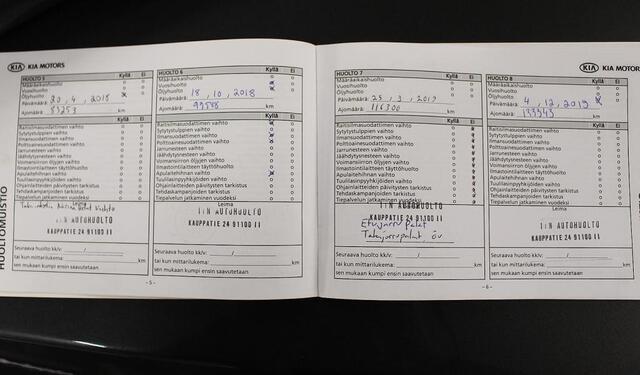 KIA KIA MOTORS
HUOLTO 5 Kyllä Ei
Määräaikaishuolto
Vuosihuolto
Öljyhuolto
Päivämäärä: 20, 4, 2018
Ajomäärä: 83253 km
Raitisilmasuodattimen vaihto
Sytytystulppien vaihto
Ilmansuodattimen vaihto
Polttoainesuodattimen vaihto
Jarrunesteen vaihto
Jäähdytysnesteen vaihto
Voimansiirron öljyjen vaihto
Ilmastointilaitteen täyttöhuolto
Apulaitehihnan vaihto
Tuulilasinpyyhkijöiden vaihto
Ohjainlaitteiden päivitysten tarkistus
Tehdaskampanjoiden tarkistus
Tiepalvelun jatkaminen vuodeksi
Leima
I:N AUTOHUOLTO
KAUPPATIE 24 91100 II
Seuraava huolto kk/v: /
tai kun mittarilukema: km
sen mukaan kumpi ensin saavutetaan
- 5 -
HUOLTO 6 Kyllä Ei
Määräaikaishuolto
Vuosihuolto
Öljyhuolto
Päivämäärä: 18, 10, 2018
Ajomäärä: 99588 km
Raitisilmasuodattimen vaihto
Sytytystulppien vaihto
Ilmansuodattimen vaihto
Polttoainesuodattimen vaihto
Jarrunesteen vaihto
Jäähdytysnesteen vaihto
Voimansiirron öljyjen vaihto
Ilmastointilaitteen täyttöhuolto
Apulaitehihnan vaihto
Tuulilasinpyyhkijöiden vaihto
Ohjainlaitteiden päivitysten tarkistus
Tehdaskampanjoiden tarkistus
Tiepalvelun jatkaminen vuodeksi
Leima
I:N AUTOHUOLTO
KAUPPATIE 24 91100 II
Seuraava huolto kk/v: /
tai kun mittarilukema: km
sen mukaan kumpi ensin saavutetaan
HUOLTOMUISTIO
KIA KIA MOTORS
HUOLTO 7 Kyllä Ei
Määräaikaishuolto
Vuosihuolto
Öljyhuolto
Päivämäärä: 25, 3, 2019
Ajomäärä: 116300 km
Raitisilmasuodattimen vaihto
Sytytystulppien vaihto
Ilmansuodattimen vaihto
Polttoainesuodattimen vaihto
Jarrunesteen vaihto
Jäähdytysnesteen vaihto
Voimansiirron öljyjen vaihto
Ilmastointilaitteen täyttöhuolto
Apulaitehihnan vaihto
Tuulilasinpyyhkijöiden vaihto
Ohjainlaitteiden päivitysten tarkistus
Tehdaskampanjoiden tarkistus
Tiepalvelun jatkaminen vuodeksi
Leima
I:N AUTOHUOLTO
KAUPPATIE 24 91100 II
Etujarru palat
Takajarrupalat öv
Seuraava huolto kk/v: /
tai kun mittarilukema: km
sen mukaan kumpi ensin saavutetaan
HUOLTO 8 Kyllä Ei
Määräaikaishuolto
Vuosihuolto
Öljyhuolto
Päivämäärä: 4, 12, 2019
Ajomäärä: 133343 km
Raitisilmasuodattimen vaihto
Sytytystulppien vaihto
Ilmansuodattimen vaihto
Polttoainesuodattimen vaihto
Jarrunesteen vaihto
Jäähdytysnesteen vaihto
Voimansiirron öljyjen vaihto
Ilmastointilaitteen täyttöhuolto
Apulaitehihnan vaihto
Tuulilasinpyyhkijöiden vaihto
Ohjainlaitteiden päivitysten tarkistus
Tehdaskampanjoiden tarkistus
Tiepalvelun jatkaminen vuodeksi
Leima
I:N AUTOHUOLTO
KAUPPATIE 24 91100 II
Seuraava huolto kk/v: /
tai kun mittarilukema: km
sen mukaan kumpi ensin saavutetaan
- 6 -